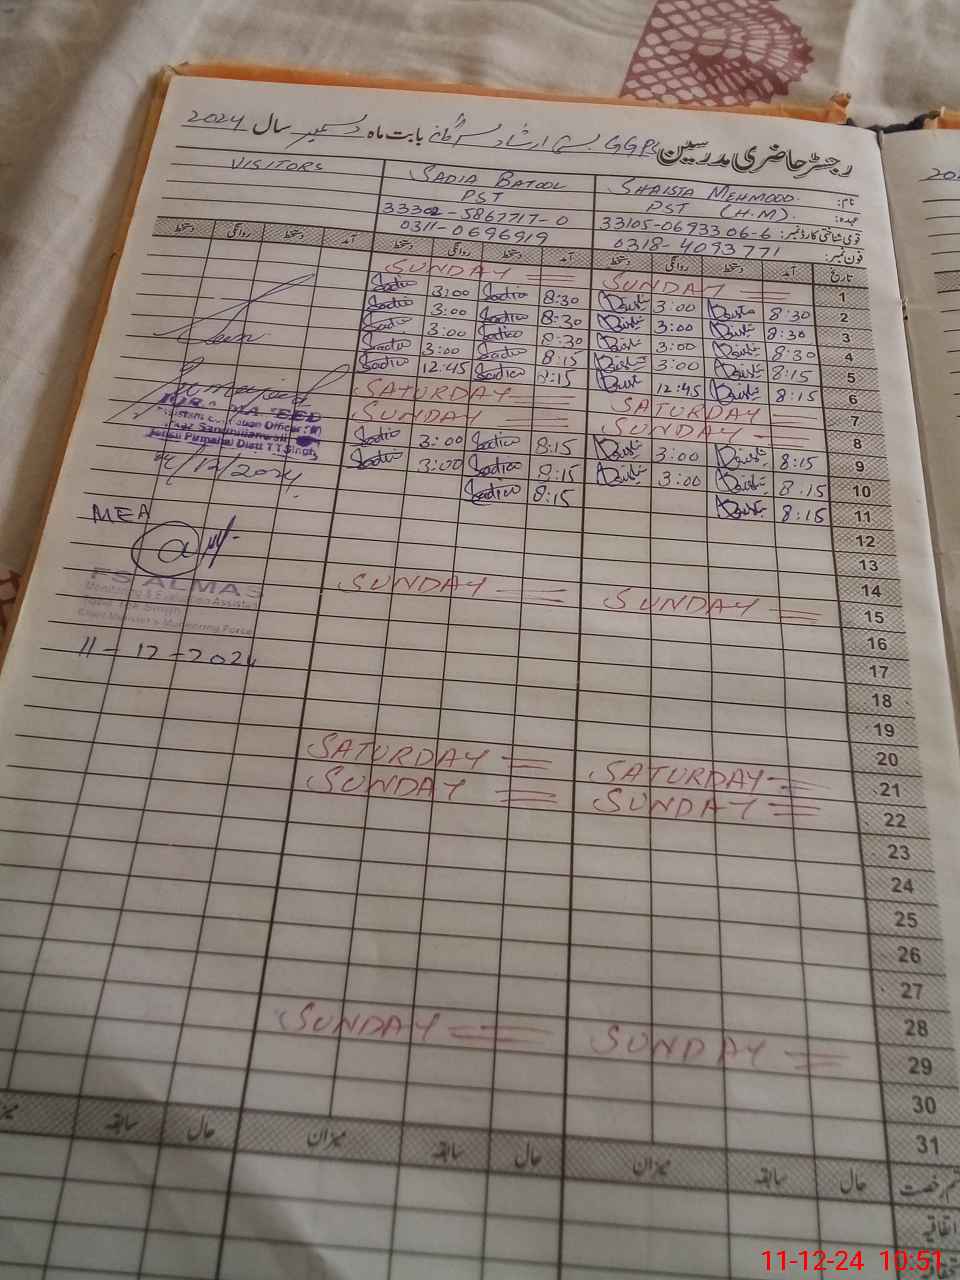 رجسٹر حاضری مدرسین GGPS بستی ارشاد بابت ماہ دسمبر سال 2024
نام: SHAISTA MEHMOOD SADIA BATOOL VISITORS
عہدہ: PST (H.M). PST
قومی شناختی کارڈ نمبر: 33105-0693306-6 33302-5867717-0
فون نمبر: 0318-4093771 0311-0696919
تاریخ آمد دستخط روانگی دستخط آمد دستخط روانگی دستخط آمد دستخط روانگی دستخط
1 SUNDAY SUNDAY
2 8:30 3:00 8:30 Sadia 3:00 Sadia
3 8:30 3:00 8:30 Sadia 3:00 Sadia
4 8:30 3:00 8:30 Sadia 3:00 Sadia
5 8:15 3:00 8:15 Sadia 3:00 Sadia
6 8:15 12:45 8:15 Sadia 12:45 Sadia
7 SATURDAY SATURDAY
8 SUNDAY SUNDAY
9 8:15 3:00 8:15 Sadia 3:00 Sadia
10 8:15 3:00 8:15 Sadia 3:00 Sadia
11 8:15 8:15 Sadia
12
13
14
15 SUNDAY SUNDAY
16
17
18
19
20
21 SATURDAY SATURDAY
22 SUNDAY SUNDAY
23
24
25
26
27
28
29 SUNDAY SUNDAY
30
31
قسم رخصت حال سابقہ میزان حال سابقہ میزان حال سابقہ میزان
اتفاقیہ
Assistant Education Officer
Pirmahal Distt T.T Singh
/12/2024
MEA
ALMAS
Monitoring & Evaluation Assistant
Chief Minister's Monitoring Force
11-12-2024
11-12-24 10:51